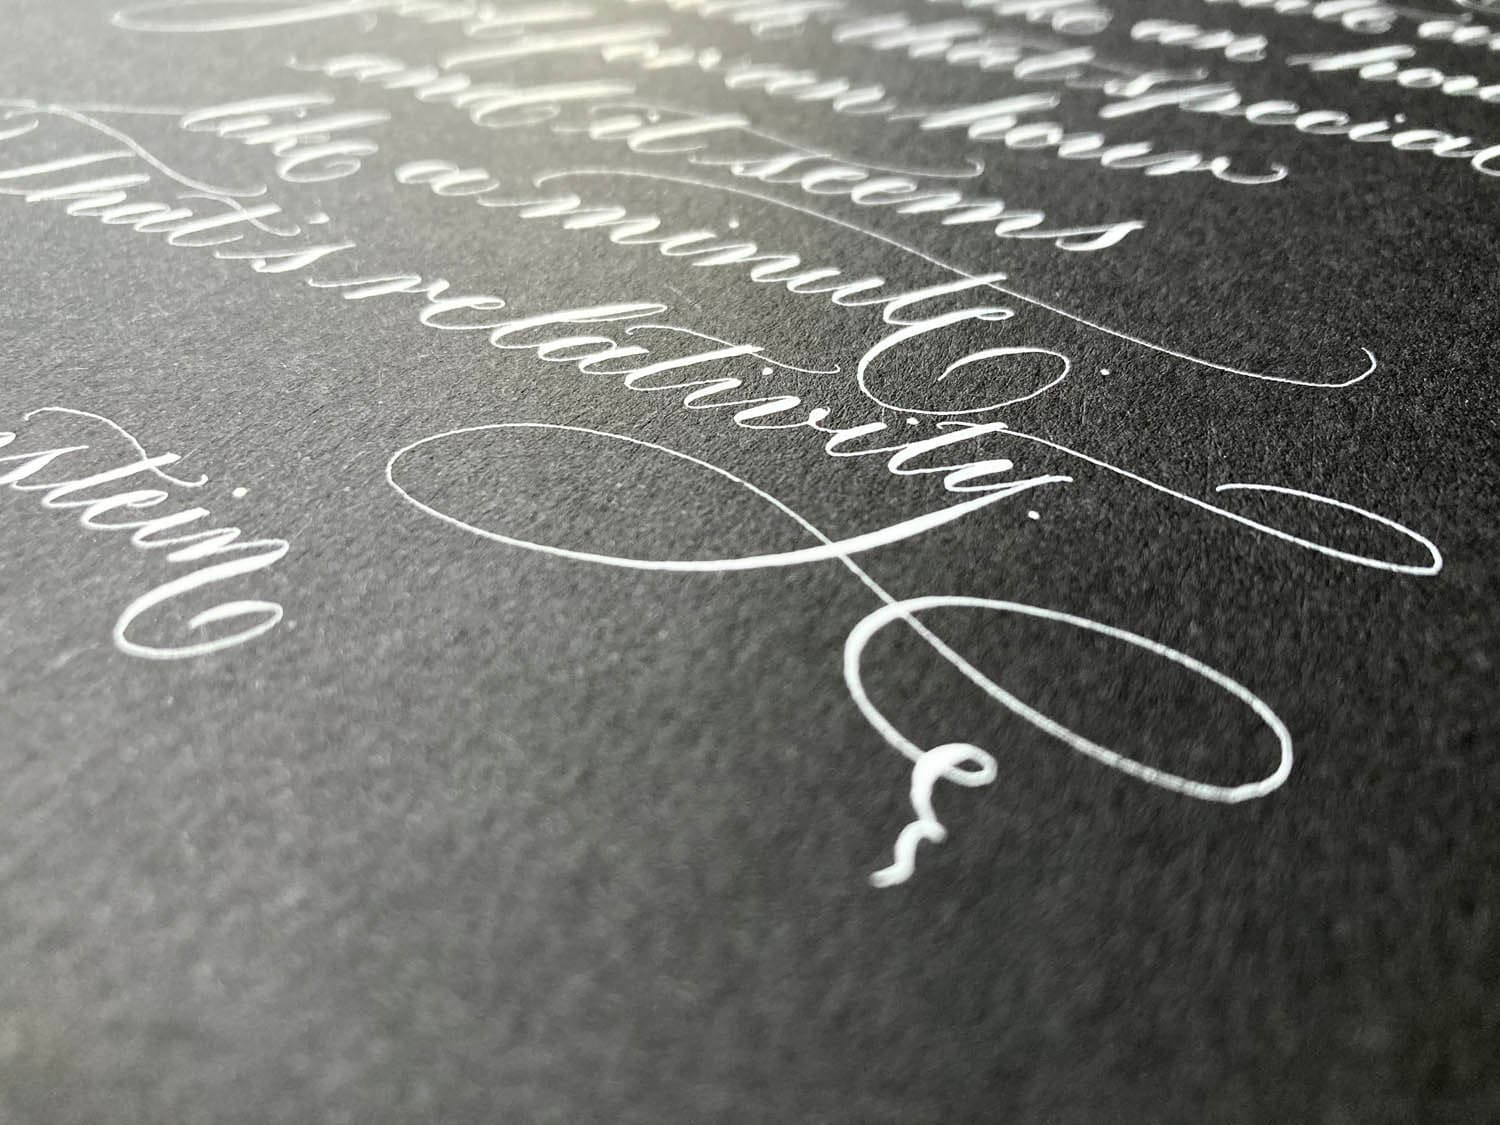 an hou
that special
for an hour
and it seems
like a minute.
That's relativity.
stein